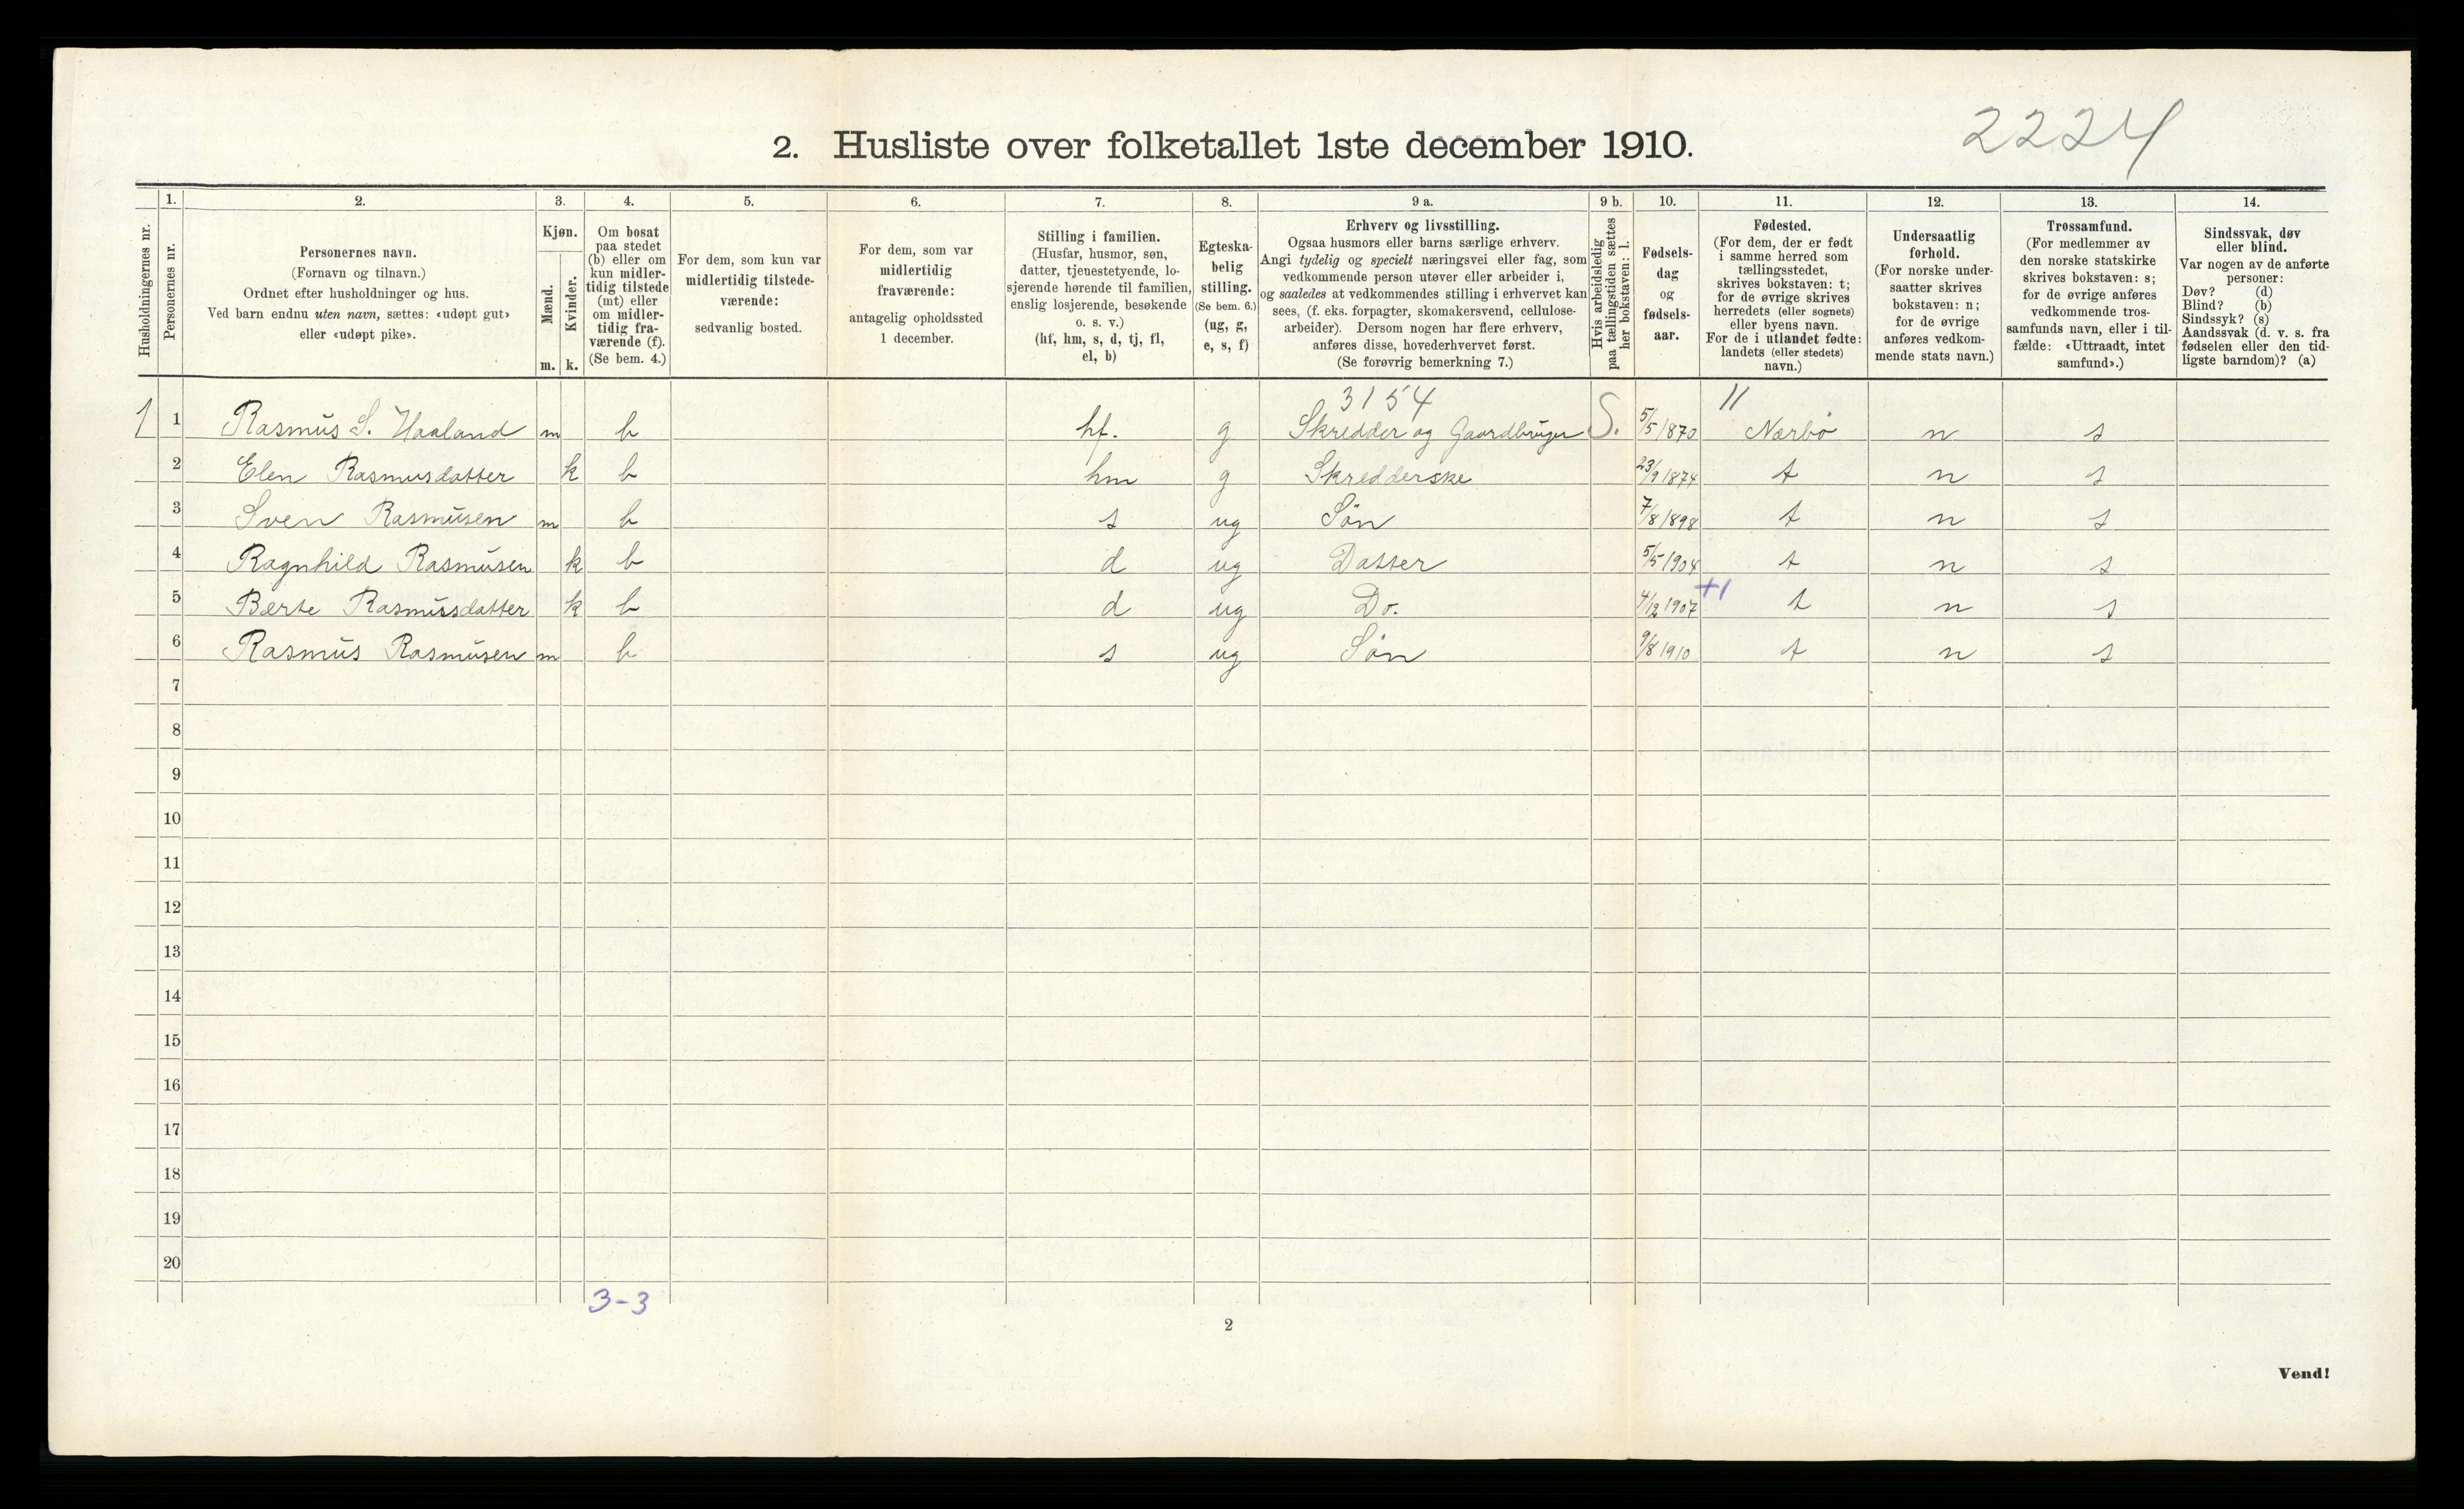 2224
2. Husliste over folketallet 1ste december 1910.
Husholdningernes nr.
1.
Personernes nr.
2.
Personernes navn.
(Fornavn og tilnavn.)
Ordnet efter husholdninger og hus.
Ved barn endnu uten navn, sættes: «udøpt gut»
eller «udøpt pike».
3.
Kjøn.
Mænd.
m.
Kvinder.
k.
4.
Om bosat
paa stedet
(b) eller om
kun midler-
tidig tilstede
(mt) eller
om midler-
tidig fra-
værende (f).
(Se bem. 4.)
5.
For dem, som kun var
midlertidig tilstede-
værende:
sedvanlig bosted.
6.
For dem, som var
midlertidig
fraværende:
antagelig opholdssted
1 december.
7.
Stilling i familien.
(Husfar, husmor, søn,
datter, tjenestetyende, lo-
sjerende hørende til familien,
enslig losjerende, besøkende
o. s. v.)
(hf, hm, s, d, tj, fl,
el, b)
8.
Egteska-
belig
stilling.
(Se bem. 6.)
(ug, g,
e, s, f)
9 a.
Erhverv og livsstilling.
Ogsaa husmors eller barns særlige erhverv.
Angi tydelig og specielt næringsvei eller fag, som
vedkommende person utøver eller arbeider i,
og saaledes at vedkommendes stilling i erhvervet kan
sees, (f. eks. forpagter, skomakersvend, cellulose-
arbeider). Dersom nogen har flere erhverv,
anføres disse, hovederhvervet først.
(Se forøvrig bemerkning 7.)
9 b.
Hvis arbeidsledig
paa tællingstiden sættes
her bokstaven: l.
10.
Fødsels-
dag
og
fødsels-
aar.
11.
Fødested.
(For dem, der er født
i samme herred som
tællingsstedet,
skrives bokstaven: t;
for de øvrige skrives
herredets (eller sognets)
eller byens navn.
For de i utlandet fødte:
landets (eller stedets)
navn.)
12.
Undersaatlig
forhold.
(For norske under-
saatter skrives
bokstaven: n;
for de øvrige
anføres vedkom-
mende stats navn.)
13.
Trossamfund.
(For medlemmer av
den norske statskirke
skrives bokstaven: s;
for de øvrige anføres
vedkommende tros-
samfunds navn, eller i til-
fælde: «Uttraadt, intet
samfund».)
14.
Sindssvak, døv
eller blind.
Var nogen av de anførte
personer:
Døv? (d)
Blind? (b)
Sindssyk? (s)
Aandssvak (d. v. s. fra
fødselen eller den tid-
ligste barndom)? (a)
3154 11
1 1 Rasmus S. Haaland m b hf. g Skredder og Gaardbruger S. 5/5 1870 Nærbø n s
2 Elen Rasmusdatter k b hm g Skredderske 23/9 1874 t n s
3 Sven Rasmusen m b s ug Søn 7/8 1898 t n s
4 Ragnhild Rasmusen k b d ug Datter 5/5 1904 t n s
+1
5 Berte Rasmusdatter k b d ug Do. 4/12 1907 t n s
6 Rasmus Rasmusen m b s ug Søn 9/8 1910 t n s
7
8
9
10
11
12
13
14
15
16
17
18
19
20
3-3
2
Vend!